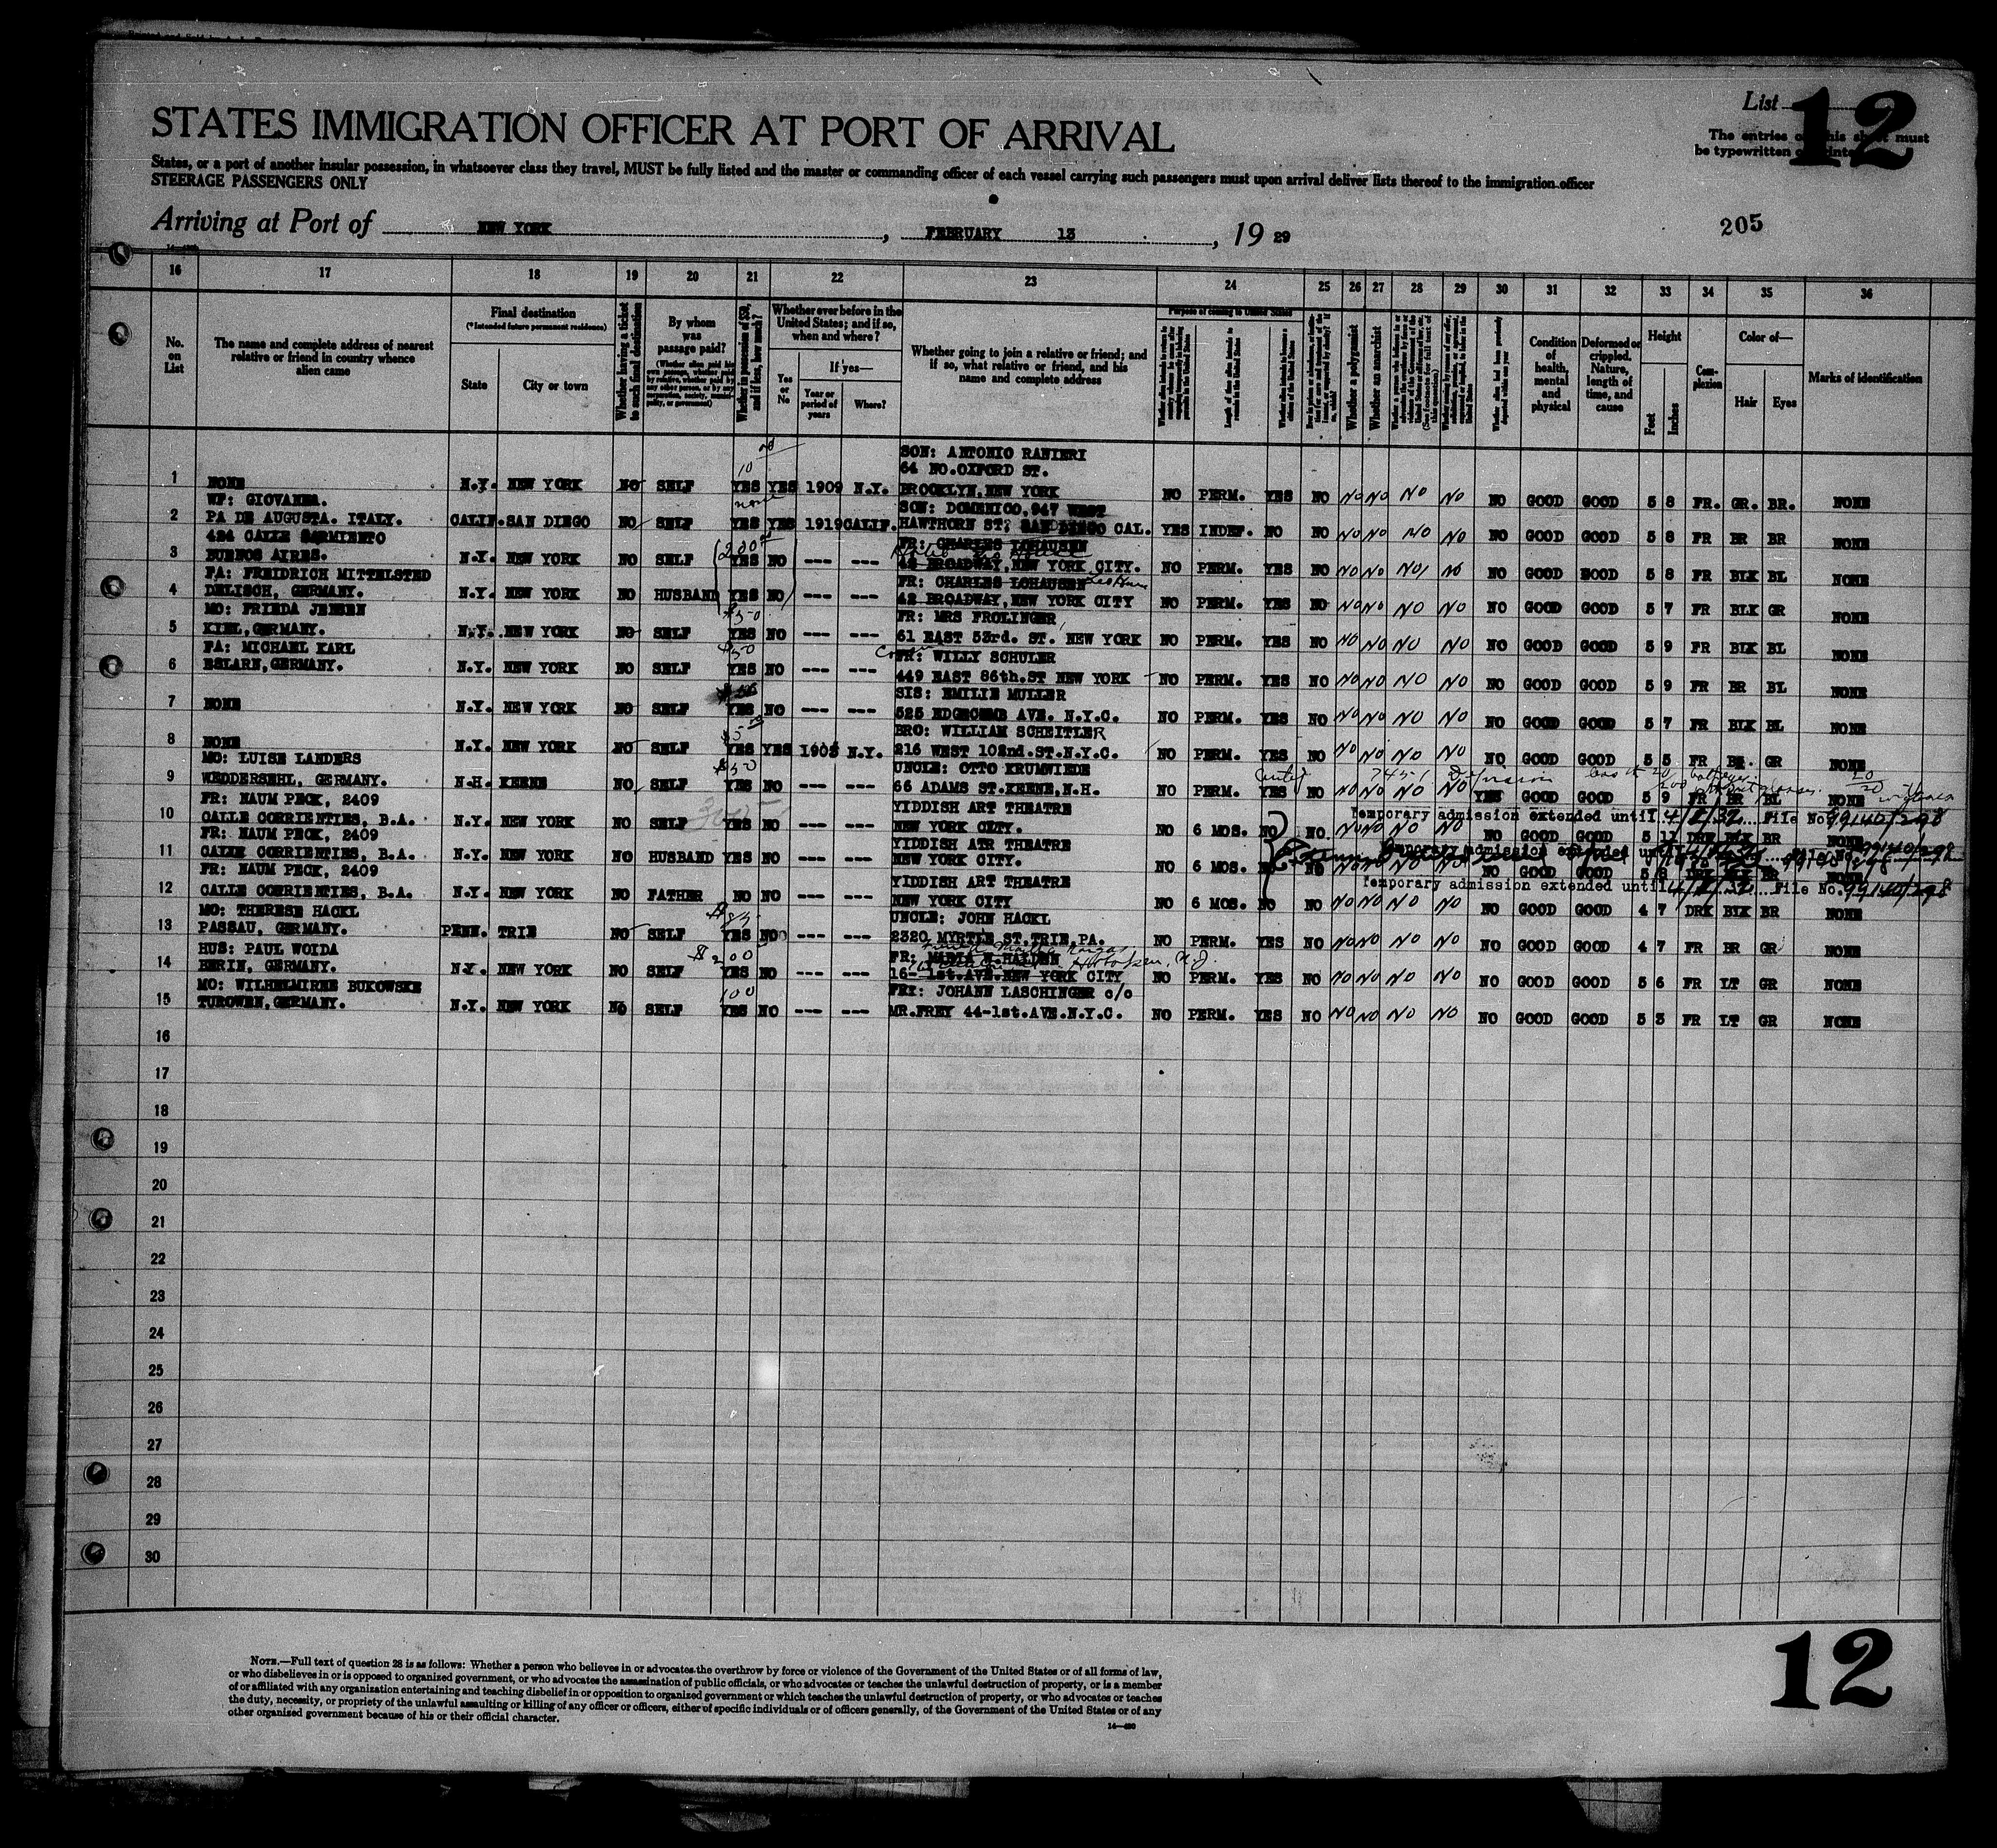 List 12
STATES IMMIGRATION OFFICER AT PORT OF ARRIVAL
The entries on this sheet must
be typewritten or printed
States, or a port of another insular possession, in whatsoever class they travel, MUST be fully listed and the master or commanding officer of each vessel carrying such passengers must upon arrival deliver lists thereof to the immigration officer
STEERAGE PASSENGERS ONLY
Arriving at Port of NEW YORK, FEBRUARY 13, 19 29
205
16 17 18 19 20 21 22 23 24 25 26 27 28 29 30 31 32 33 34 35 36
No. on List
The name and complete address of nearest relative or friend in country whence alien came
Final destination
(*Intended future permanent residence)
State
City or town
Whether having a ticket to such final destination
By whom was passage paid?
Whether in possession of $50, and if less, how much?
Whether ever before in the United States; and if so, when and where?
Yes or No
If yes—
Year or period of years
Where?
Whether going to join a relative or friend; and if so, what relative or friend, and his name and complete address
Purpose of coming to United States
Whether a polygamist
Whether an anarchist
Condition of health, mental and physical
Deformed or crippled. Nature, length of time, and cause
Height
Feet
Inches
Complexion
Color of—
Hair
Eyes
Marks of identification
SON: ANTONIO RANIERI
64 NO.OXFORD ST.
1 NONE N.Y. NEW YORK NO SELF 10 YES YES 1909 N.Y. BROOKLYN,NEW YORK NO PERM. YES NO NO NO NO NO NO GOOD GOOD 5 8 FR. GR. BR. NONE
WF: GIOVANNA. SON: DOMENICO,947 WEST
2 PA DE AUGUSTA. ITALY. CALIF. SAN DIEGO NO SELF none YES YES 1919 CALIF. HAWTHORN ST, SAN DIEGO CAL. YES INDEF. NO NO NO NO NO NO NO GOOD GOOD 5 8 FR BR BR NONE
424 CALLE SARMIENTO FR: CHARLES LOHAUSEN
3 BUENOS AIRES. N.Y. NEW YORK NO SELF 200 YES NO --- --- 42 BROADWAY,NEW YORK CITY. NO PERM. YES NO NO NO NO NO NO GOOD GOOD 5 8 FR BLK BL NONE
FA: FREIDRICH MITTELSTED FR: CHARLES LOHAUSEN
4 DELISCH, GERMANY. N.Y. NEW YORK NO HUSBAND YES NO --- --- 42 BROADWAY,NEW YORK CITY NO PERM. YES NO NO NO NO NO NO GOOD GOOD 5 7 FR BLK GR NONE
MO: FRIEDA JENSEN $50 FR: MRS FROLINGER,
5 KIEL,GERMANY. N.Y. NEW YORK NO SELF YES NO --- --- 61 EAST 53rd. ST. NEW YORK NO PERM. YES NO NO NO NO NO NO GOOD GOOD 5 9 FR BLK BL NONE
FA: MICHAEL KARL $50 FR: WILLY SCHULER
6 ESLARN,GERMANY. N.Y. NEW YORK NO SELF YES NO --- --- 449 EAST 86th.ST NEW YORK NO PERM. YES NO NO NO NO NO NO GOOD GOOD 5 9 FR BR BL NONE
SIS: EMILIE MULLER
7 NONE N.Y. NEW YORK NO SELF YES NO --- --- 525 EDGECOMB AVE. N.Y.C. NO PERM. YES NO NO NO NO NO NO GOOD GOOD 5 7 FR BLK BL NONE
BRO: WILLIAM SCHEITLER
8 NONE N.Y. NEW YORK NO SELF YES YES 1905 N.Y. 216 WEST 102nd.ST.N.Y.C. NO PERM. YES NO NO NO NO NO NO GOOD GOOD 5 5 FR BR. GR NONE
MO: LUISE LANDERS $50 UNCLE: OTTO KRUMWIEDE
9 WEDDERSEHL, GERMANY. N.H. KEENE NO SELF YES NO --- --- 66 ADAMS ST.KEENE,N.H. NO PERM. YES NO NO NO NO NO YES GOOD GOOD 5 9 FR BR BL NONE
FR: NAUM PECK, 2409 YIDDISH ART THEATRE Temporary admission extended until 4/2/32 File No. 99140/298
10 CALLE CORRIENTIES, B.A. N.Y. NEW YORK NO SELF YES NO --- --- NEW YORK CITY. NO 6 MOS. NO NO NO NO NO NO NO GOOD GOOD 5 11 DRK BLK BR NONE
FR: NAUM PECK, 2409 YIDDISH ATR THEATRE Temporary admission extended until
11 CALLE CORRIENTIES, B.A. N.Y. NEW YORK NO HUSBAND YES NO --- --- NEW YORK CITY. NO 6 MOS. NO NO NO NO NO NO NO GOOD GOOD 5 8 DRK BLK BR NONE
FR: NAUM PECK, 2409 YIDDISH ART THEATRE Temporary admission extended until 4/2/32 File No. 99140/298
12 CALLE CORRIENTIES, B.A. N.Y. NEW YORK NO FATHER NO NO --- --- NEW YORK CITY NO 6 MOS. NO NO NO NO NO NO NO GOOD GOOD 4 7 DRK BLK BR NONE
MO: THERESE HACKL UNCLE: JOHN HACKL
13 PASSAU, GERMANY. PENN. TRIE NO SELF YES NO --- --- 2320 MYRTLE ST.TRIE,PA. NO PERM. YES NO NO NO NO NO NO GOOD GOOD 4 7 FR BR GR NONE
HUS: PAUL WOIDA $200 FR: MARIA W.HALDEN Hoboken, N.J.
14 BERIN, GERMANY. N.Y. NEW YORK NO SELF YES NO --- --- 16-1st.AVE.NEW YORK CITY NO PERM. YES NO NO NO NO NO NO GOOD GOOD 5 6 FR LT GR NONE
MO: WILHELMIRNE BUKOWSKE 100 FRI: JOHANN LASCHINGER c/o
15 TUROWEN,GERMANY. N.Y. NEW YORK NO SELF YES NO --- --- MR.FREY 44-1st.AVE.N.Y.C. NO PERM. YES NO NO NO NO NO NO GOOD GOOD 5 3 FR LT GR NONE
16
17
18
19
20
21
22
23
24
25
26
27
28
29
30
NOTE.—Full text of question 28 is as follows: Whether a person who believes in or advocates the overthrow by force or violence of the Government of the United States or of all forms of law,
or who disbelieves in or is opposed to organized government, or who advocates the assassination of public officials, or who advocates or teaches the unlawful destruction of property, or is a member
of or affiliated with any organization entertaining and teaching disbelief in or opposition to organized government or which teaches the unlawful destruction of property, or who advocates or teaches
the duty, necessity, or propriety of the unlawful assaulting or killing of any officer or officers, either of specific individuals or of officers generally, of the Government of the United States or of any
other organized government because of his or their official character.
14—480
12